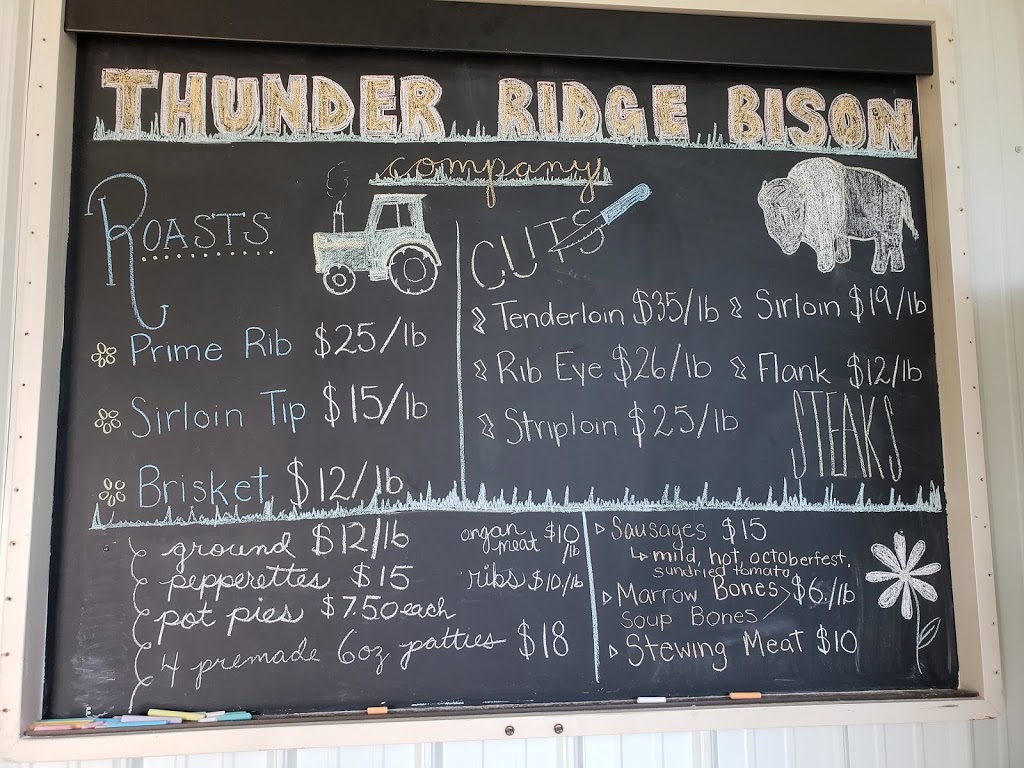 THUNDER RIDGE BISON
company
ROASTS
Prime Rib $25/lb
Sirloin Tip $15/lb
Brisket $12/lb
CUTS
Tenderloin $35/lb
Sirloin $19/lb
Rib Eye $26/lb
Flank $12/lb
Striploin $25/lb
STEAKS
ground $12/lb
pepperettes $15
pot pies $7.50 each
4 premade 6oz patties $18
organ meat $10/lb
ribs $10/lb
Sausages $15
mild, hot, octoberfest,
sundried tomato
Marrow Bones
Soup Bones
$6/lb
Stewing Meat $10